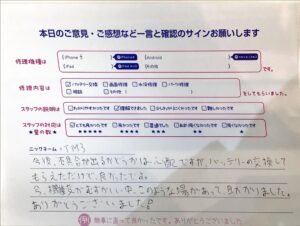 本日のご意見・ご感想など一言と確認のサインお願いします
修理機種は iPhone iPad Android その他 です。
修理内容は バッテリー交換 画面修理 水没修理 パーツ修理
相談 その他 をしてもらいました。
スタッフの説明は わかりやすかったです 理解できました 少しわかりにくかったです 難しかったです
スタッフの対応は とても良かった 良かった 普通でした
★星の数★ ★★★★★ ★★★★ ★★★ ★★ ★
ニックネーム
今後、不具合が出るかどうかは心配ですが、バッテリーの交換して
もらえただけで、良かったです。
今、機種変がむずかしい中、このような場があって、助かりました。
ありがとうございました!
例 簡単に直って良かったです。ありがとうございました